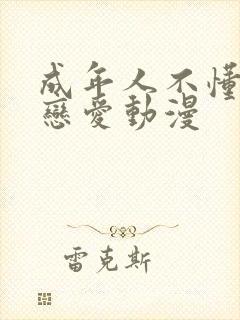 成年人不懂
戀愛動漫
雷克斯